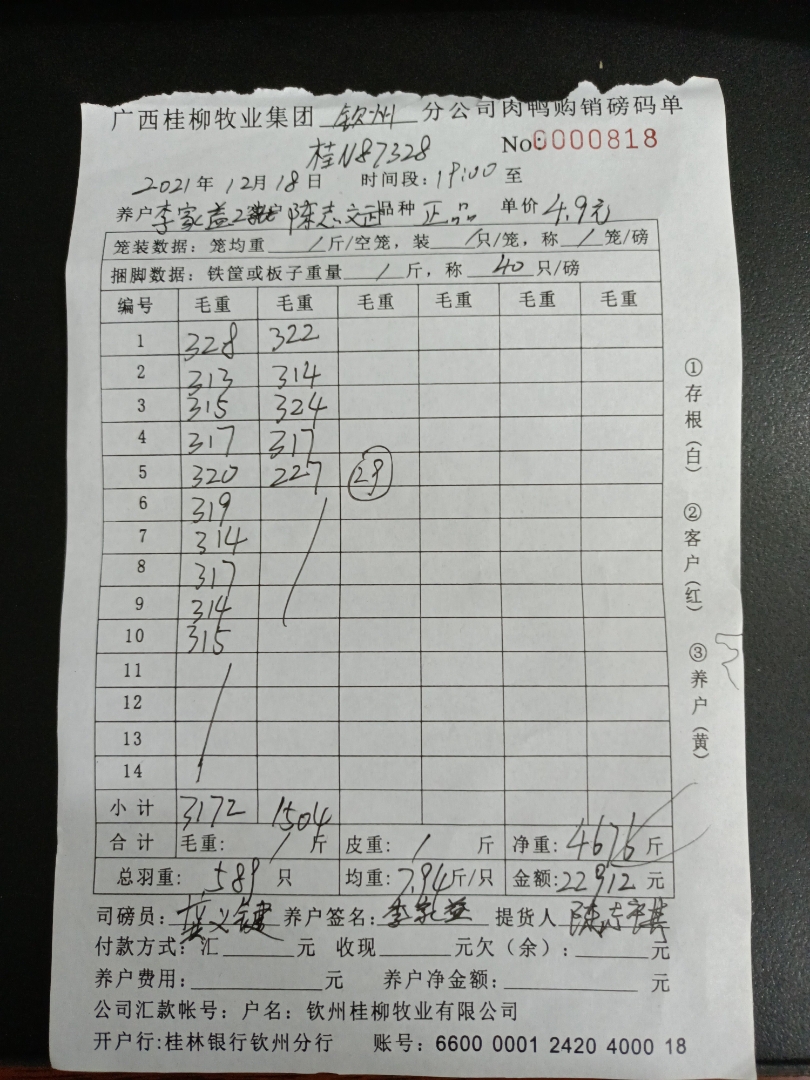 广西桂柳牧业集团 钦州 分公司肉鸭购销磅码单
桂N87328 No:0000818
2021年12月18日 时间段:19:00至
养户李家益 客户陈志文 品种 正品 单价4.9元
笼装数据:笼均重 / 斤/空笼,装 / 只/笼,称 / 笼/磅
捆脚数据:铁筐或板子重量 / 斤,称 40 只/磅
编号 毛重 毛重 毛重 毛重 毛重 毛重
1 328 322
2 313 314
3 315 324
4 317 317
5 320 227 29
6 319
7 314
8 317
9 314
10 315
11
12
13
14
小计 3172 1504
合计 毛重: / 斤 皮重: / 斤 净重:4676斤
总羽重:589只 均重:7.94斤/只 金额:22912元
司磅员: 养户签名:李家益 提货人
付款方式:汇 元 收现 元欠(余): 元
养户费用: 元 养户净金额: 元
公司汇款帐号:户名:钦州桂柳牧业有限公司
开户行:桂林银行钦州分行 账号:6600 0001 2420 4000 18
①存根(白) ②客户(红) ③养户(黄)